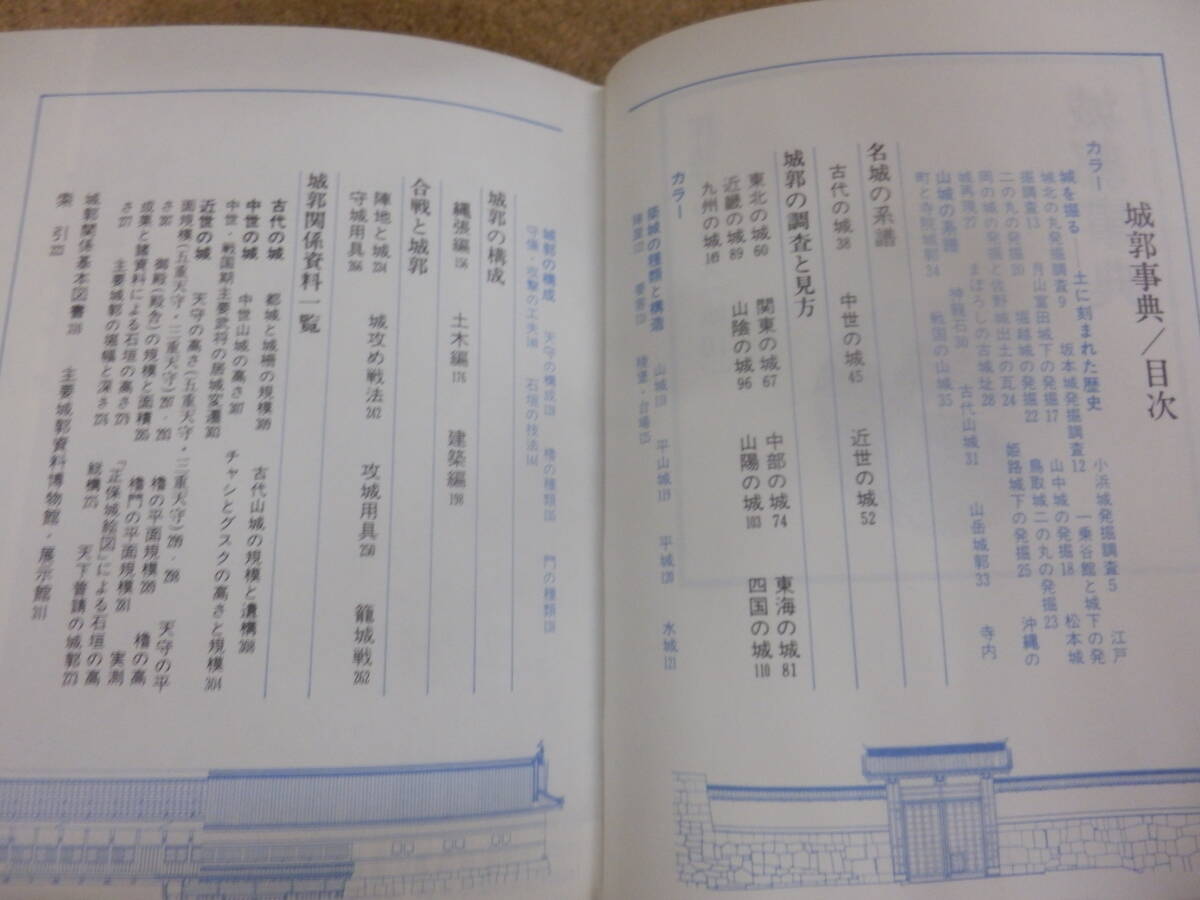 城郭事典/目次
カラー
城を掘る——土に刻まれた歴史
小浜城発掘調査5 江戸
城北の丸発掘調査9 坂本城発掘調査12 一乗谷館と城下の発
掘調査13 月山富田城下の発掘17 山中城の発掘18 松本城
二の丸の発掘20 堀越城の発掘22 鳥取城二の丸の発掘23
岡の城の発掘と佐野城出土の瓦24 姫路城下の発掘25 沖縄の
城馬場27 まぼろしの古城址28
山城の系譜 神籠石30 古代山城31 山岳城郭33 寺内
町と寺院城郭34 戦国の山城35
名城の系譜
古代の城38 中世の城45 近世の城52
城郭の調査と見方
東北の城60 関東の城67 中部の城74 東海の城81
近畿の城89 山陰の城96 山陽の城103 四国の城110
九州の城
カラー
築城の種類と構造 山城 平山城119 平城120 水城121
陣屋 要害 陵堡・台場
城郭の構成 天守の構成 櫓の種類 門の種類
守備・攻撃の工夫 石垣の技法144
城郭の構成
縄張編156 土木編176 建築編198
合戦と城郭
陣地と城234 城攻め戦法242 攻城用具250 籠城戦262
守城用具266
城郭関係資料一覧
古代の城 都城と城柵の規模309 古代山城の規模と遺構308
中世の城 中世山城の高さ307 チャシとグスクの高さと規模304
中世・戦国期主要武将の居城変遷303
近世の城 天守の高さ(五重天守・三重天守)299・298 天守の平
面規模(五重天守・三重天守)297・293 櫓の平面規模289 櫓の高
さ287 御殿(殿舎)の規模と面積285 櫓門の平面規模281 実測
成果と諸資料による石垣の高さ279 『正保城絵図』による石垣の高
さ277 主要城郭の堀幅と深さ276 総構275 天下普請の城郭273
城郭関係基本図書 主要城郭資料博物館・展示館311
索引322